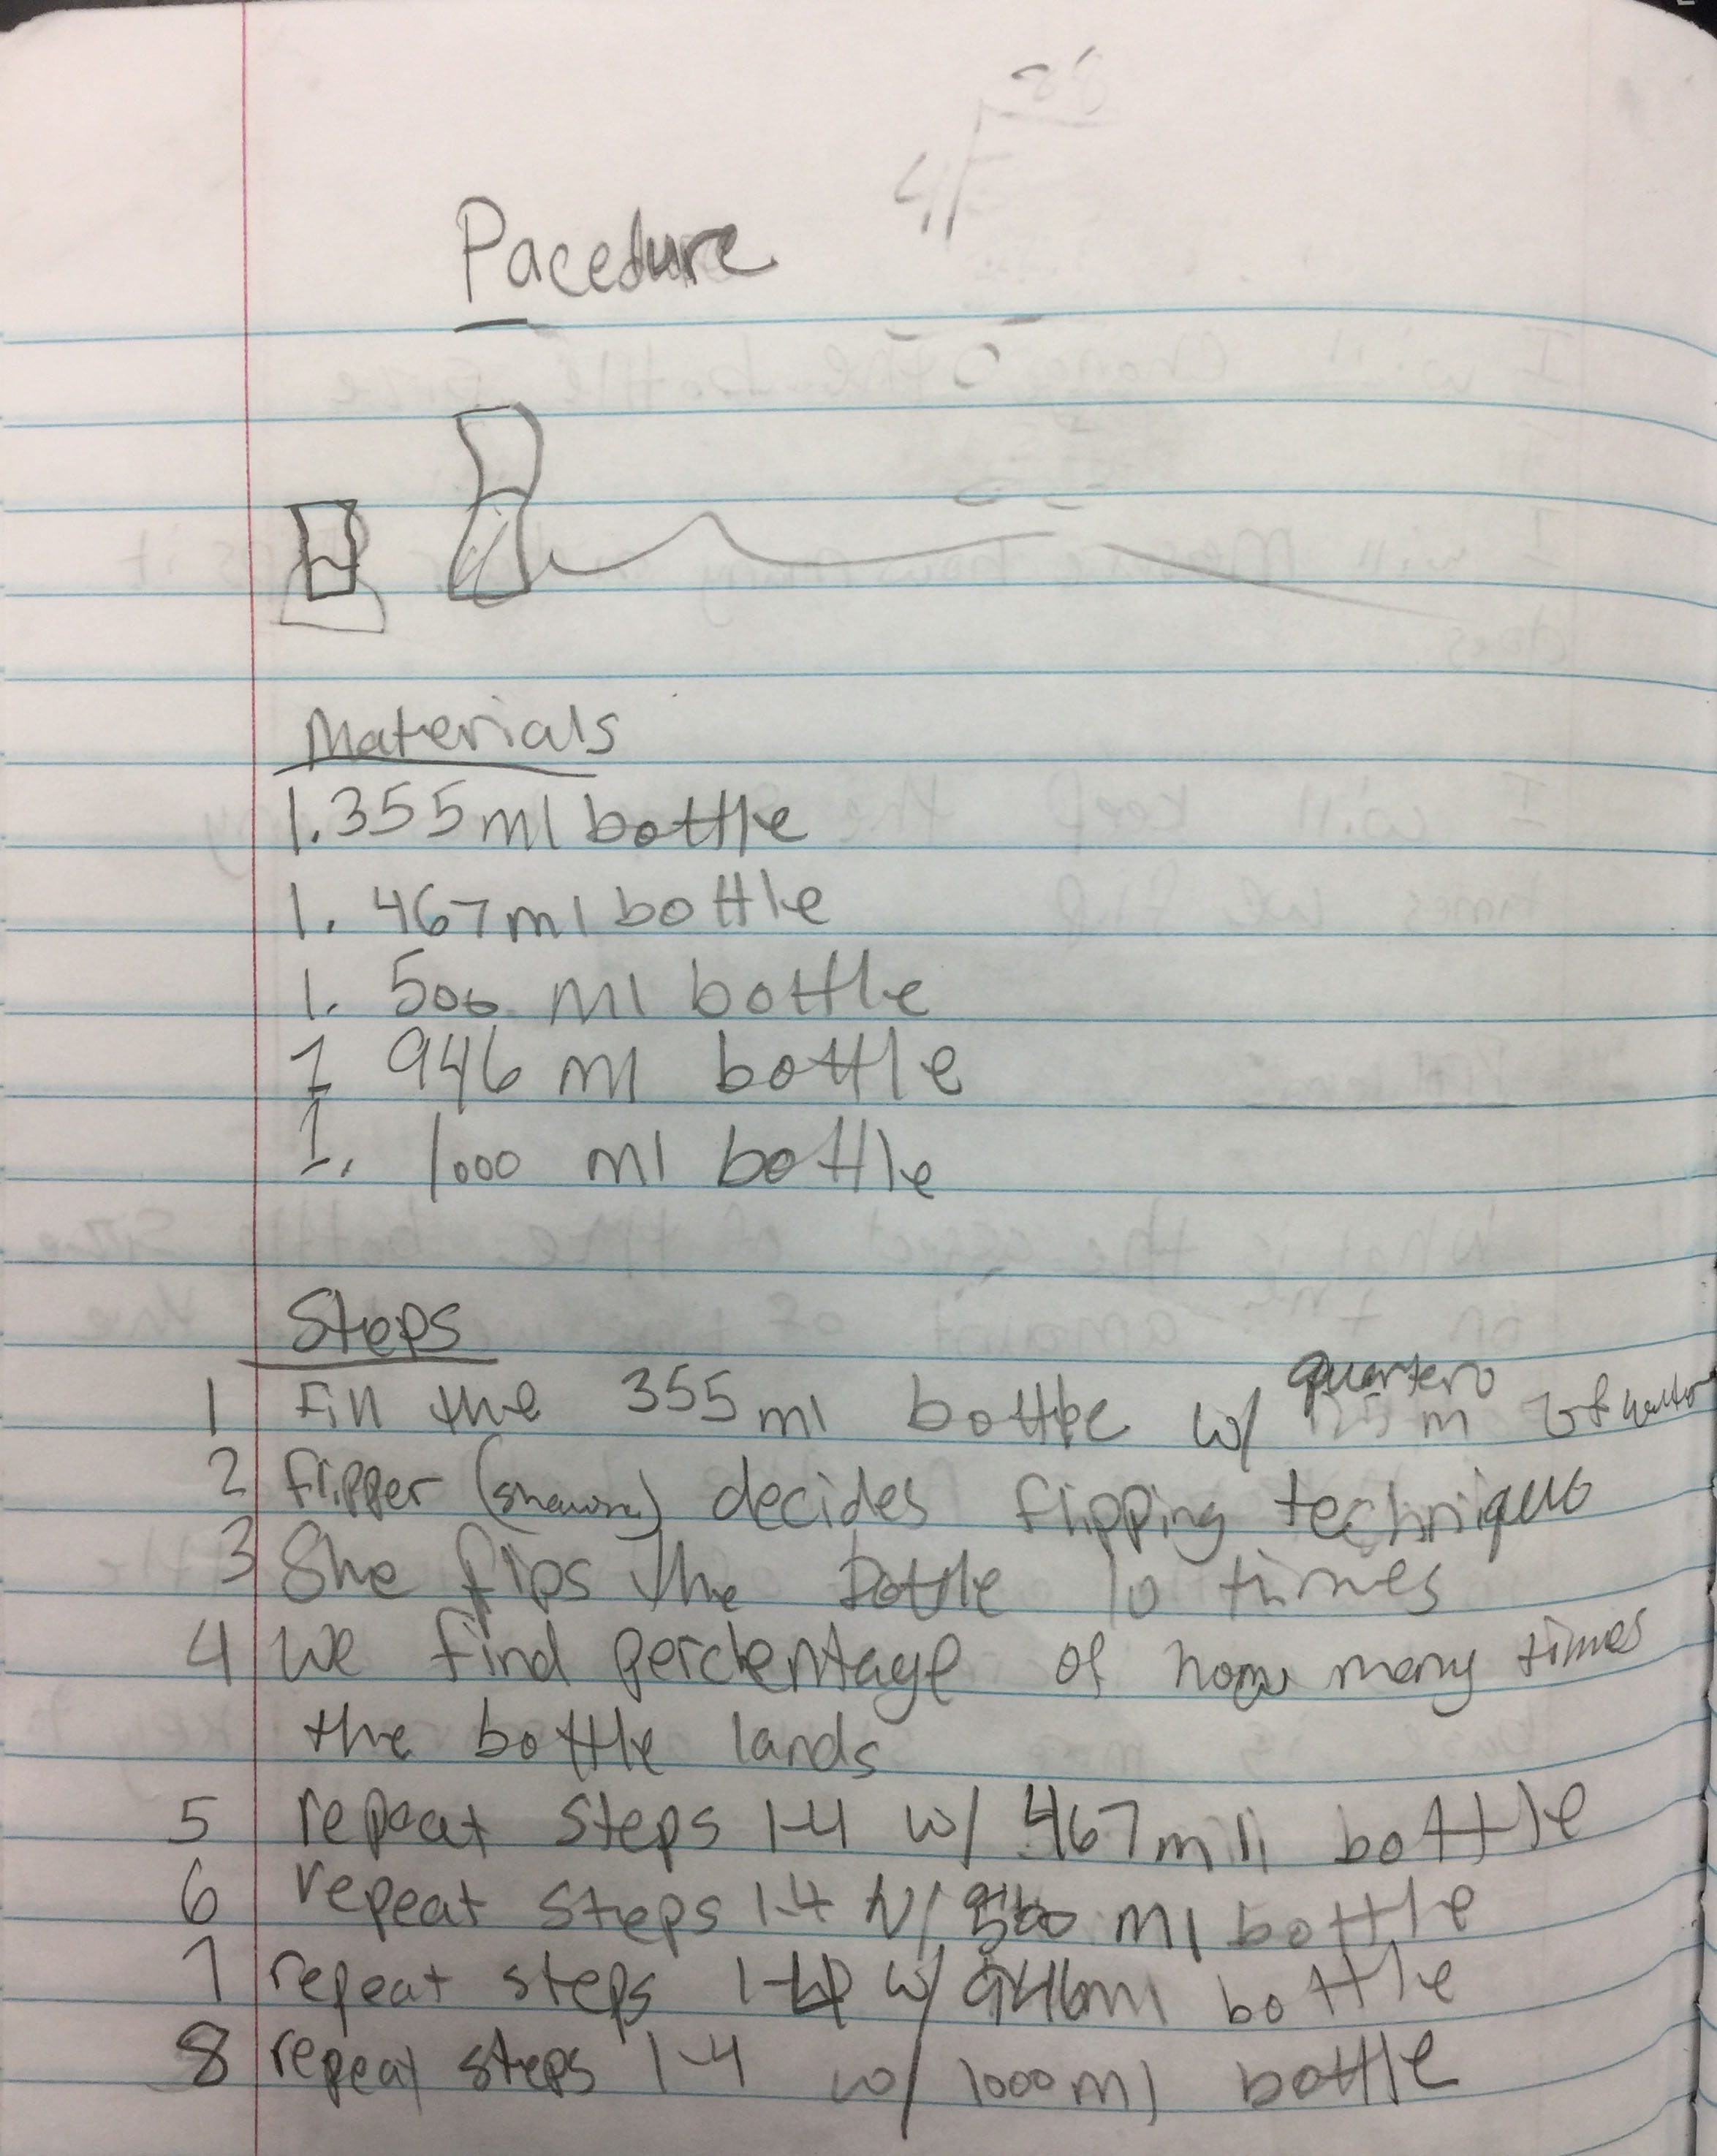 Pacedure
Materials
1. 355 ml bottle
1. 467 ml bottle
1. 500 ml bottle
1 946 ml bottle
1. 1000 ml bottle
Steps
1 Fill the 355 ml bottle w/ quarter of water
2 flipper decides flipping technique
3 She flips the bottle 10 times
4 we find percentage of how many times
the bottle lands
5 repeat steps 1-4 w/ 467 mil bottle
6 repeat steps 1-4 w/ 500 ml bottle
7 repeat steps 1-4 w/ 946ml bottle
8 repeat steps 1-4 w/ 1000 ml bottle